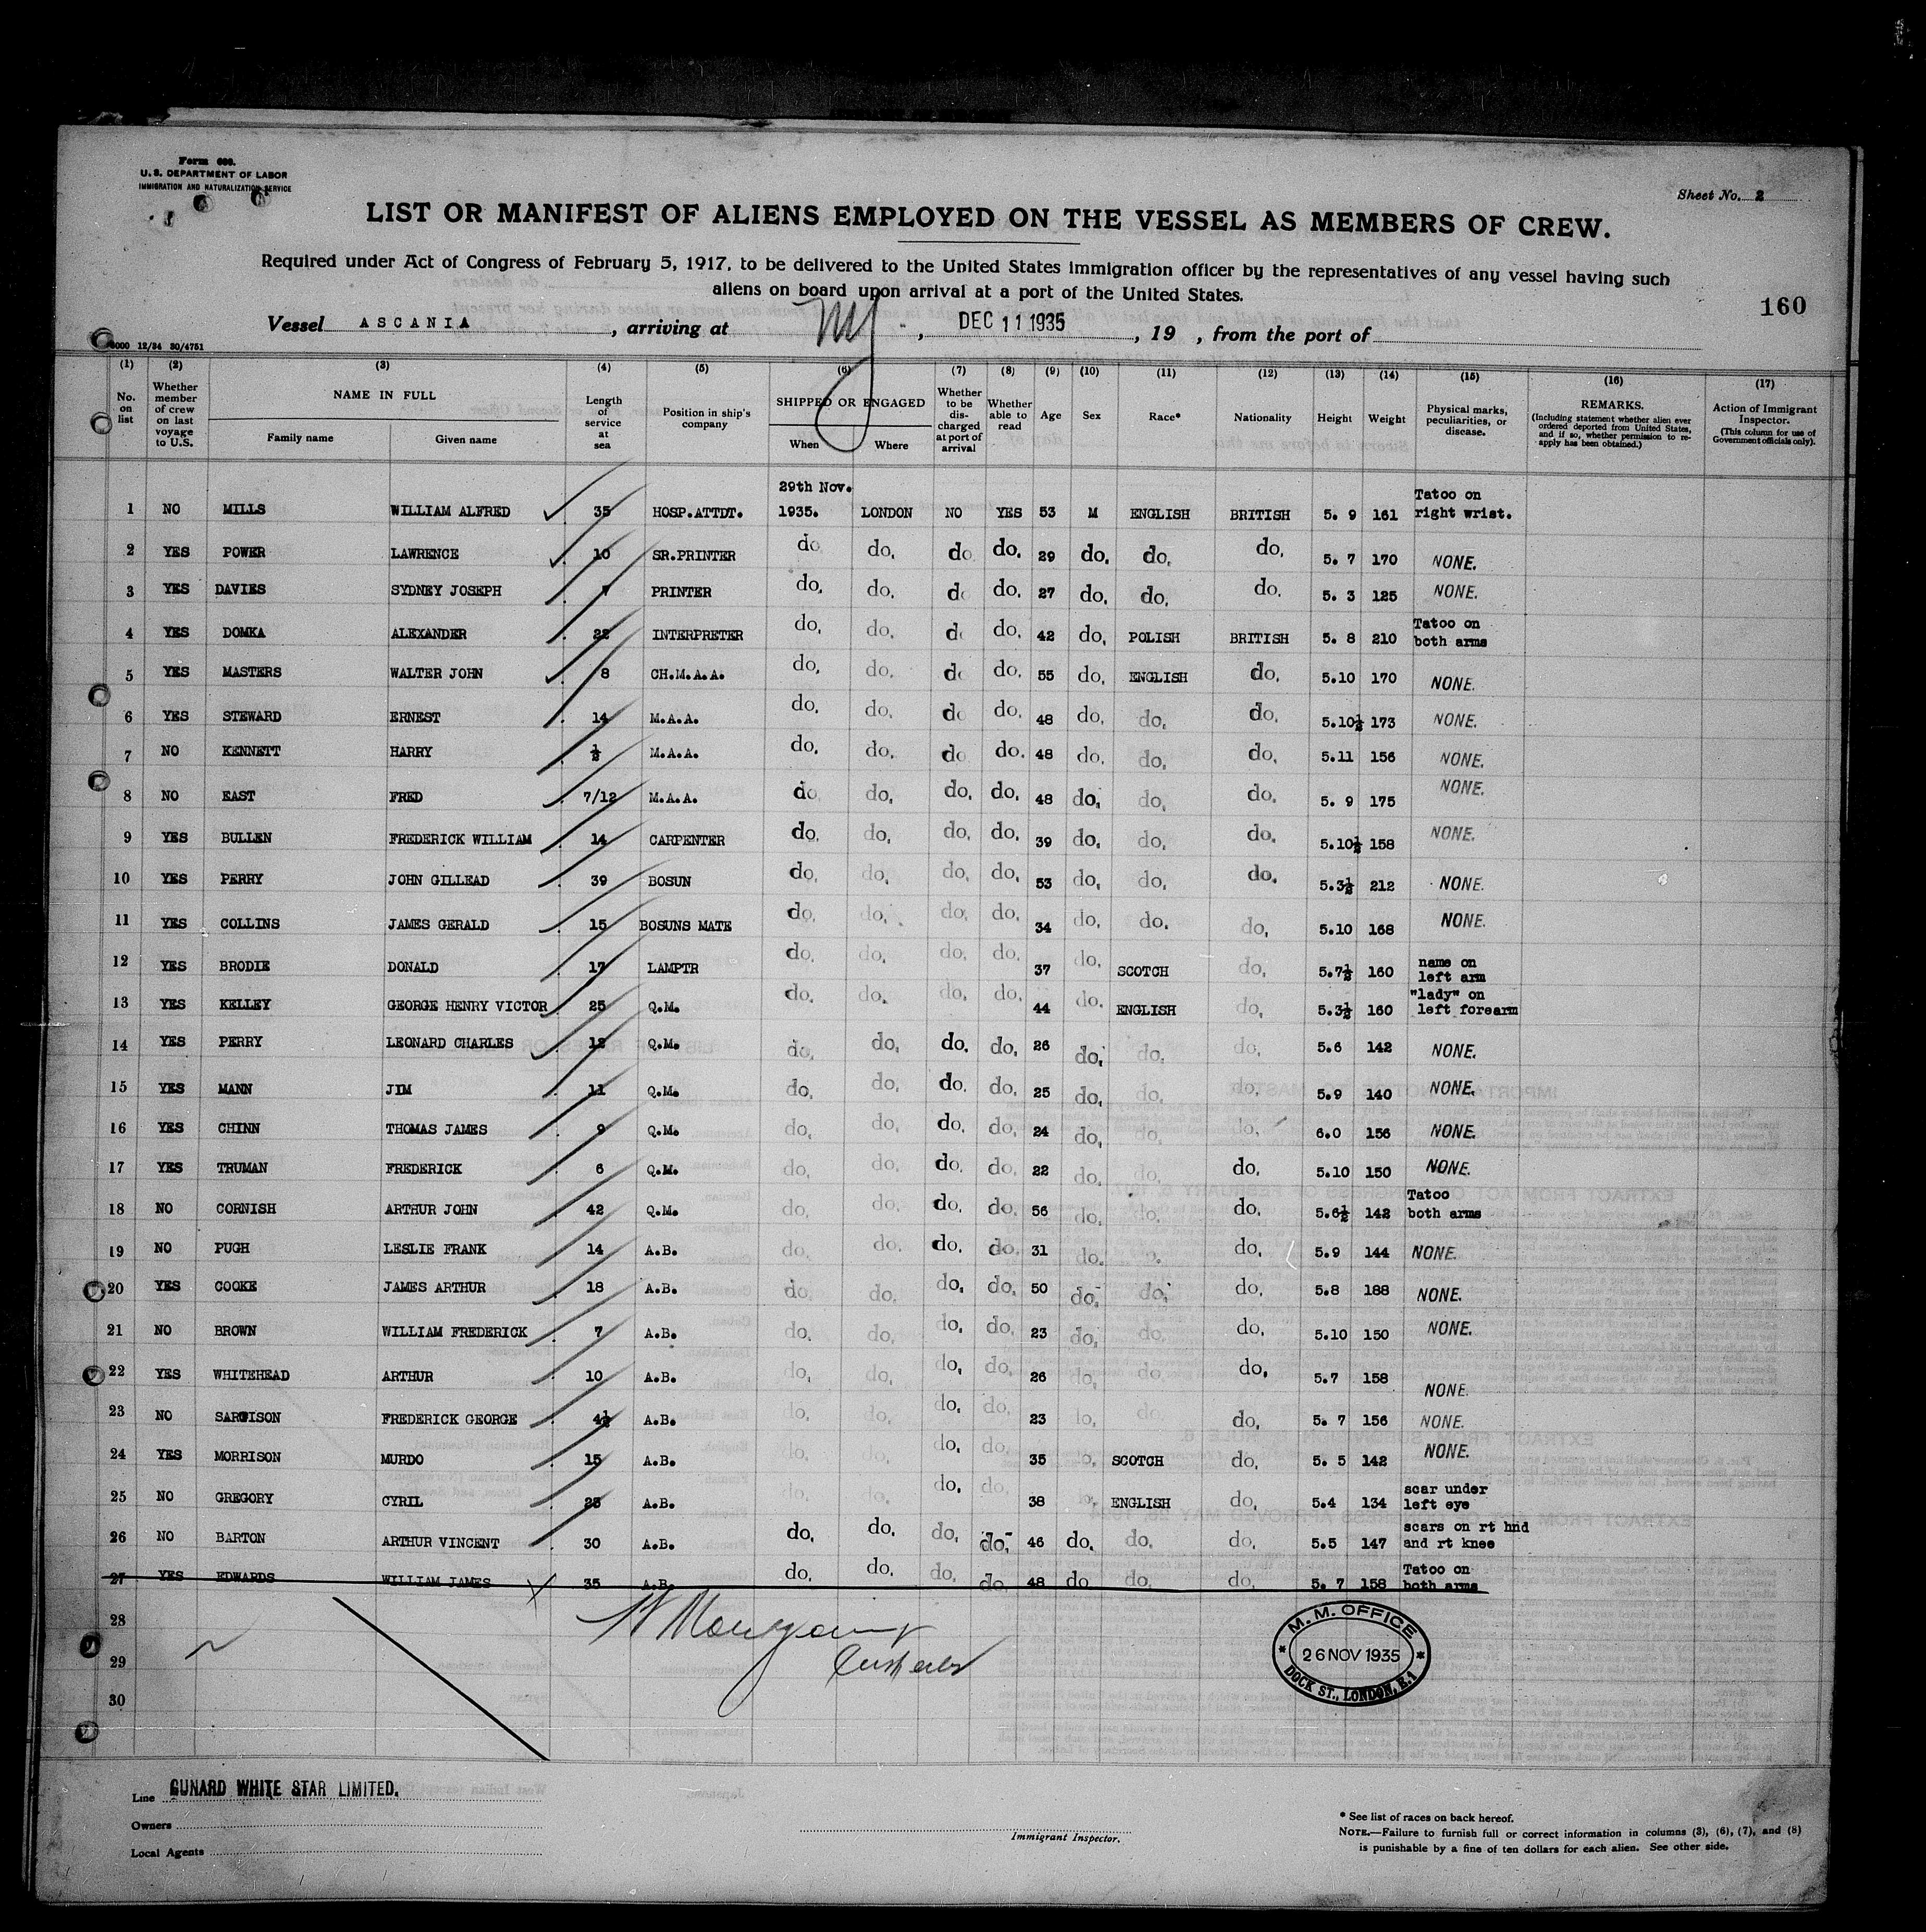 Form 686.
U. S. DEPARTMENT OF LABOR
IMMIGRATION AND NATURALIZATION SERVICE
Sheet No. 2
LIST OR MANIFEST OF ALIENS EMPLOYED ON THE VESSEL AS MEMBERS OF CREW.
Required under Act of Congress of February 5, 1917, to be delivered to the United States immigration officer by the representatives of any vessel having such
aliens on board upon arrival at a port of the United States.
160
Vessel ASCANIA, arriving at NY, DEC 11 1935, 19 , from the port of
6000 12/34 30/4751
(1) (2) (3) (4) (5) (6) (7) (8) (9) (10) (11) (12) (13) (14) (15) (16) (17)
No. on list
Whether member of crew on last voyage to U.S.
NAME IN FULL
Family name Given name
Length of service at sea
Position in ship's company
SHIPPED OR ENGAGED
When Where
Whether to be discharged at port of arrival
Whether able to read
Age
Sex
Race*
Nationality
Height
Weight
Physical marks, peculiarities, or disease.
REMARKS.
(Including statement whether alien ever ordered deported from United States, and if so, whether permission to reapply has been obtained.)
Action of Immigrant Inspector.
(This column for use of Government officials only).
1 NO MILLS WILLIAM ALFRED 35 HOSP.ATTDT. 29th Nov. 1935. LONDON NO YES 53 M ENGLISH BRITISH 5. 9 161 Tatoo on right wrist.
2 YES POWER LAWRENCE 10 SR.PRINTER do do, do do. 29 do. do. do. 5. 7 170 NONE.
3 YES DAVIES SYDNEY JOSEPH 7 PRINTER do. do. do do. 27 do. do. do. 5. 3 125 NONE.
4 YES DOMKA ALEXANDER 22 INTERPRETER do. do. do do. 42 do. POLISH BRITISH 5. 8 210 Tatoo on both arms
5 YES MASTERS WALTER JOHN 8 CH.M.A.A. do. do. do do. 55 do. ENGLISH do. 5.10 170 NONE.
6 YES STEWARD ERNEST 14 M.A.A. do. do. do do. 48 do. do. do. 5.10½ 173 NONE.
7 NO KENNETT HARRY ½ M.A.A. do. do. do do. 48 do. do. do. 5.11 156 NONE.
8 NO EAST FRED 7/12 M.A.A. do do. do. do. 48 do. do. do. 5. 9 175 NONE.
9 YES BULLEN FREDERICK WILLIAM 14 CARPENTER do. do. do. do. 39 do. do. do. 5.10½ 158 NONE.
10 YES PERRY JOHN GILLEAD 39 BOSUN do. do. do. do. 53 do. do. do. 5.3½ 212 NONE.
11 YES COLLINS JAMES GERALD 15 BOSUNS MATE do. do. do. do. 34 do. do. do. 5.10 168 NONE.
12 YES BRODIE DONALD 17 LAMPTR do. do. do. do. 37 do. SCOTCH do. 5.7½ 160 name on left arm
13 YES KELLEY GEORGE HENRY VICTOR 25 Q.M. do. do. do. do. 44 do. ENGLISH do. 5.3½ 160 "lady" on left forearm
14 YES PERRY LEONARD CHARLES 12 Q.M. do. do. do. do. 26 do. do. do. 5.6 142 NONE.
15 YES MANN JIM 11 Q.M. do. do. do. do. 25 do. do. do. 5.9 140 NONE.
16 YES CHINN THOMAS JAMES 9 Q.M. do. do. do. do. 24 do. do. do. 6.0 156 NONE.
17 YES TRUMAN FREDERICK 6 Q.M. do. do. do. do. 22 do. do. do. 5.10 150 NONE.
18 NO CORNISH ARTHUR JOHN 42 Q.M. do. do. do. do. 56 do. do. do. 5.6½ 142 Tatoo both arms
19 NO PUGH LESLIE FRANK 14 A.B. do. do. do. do. 31 do. do. do. 5.9 144 NONE.
20 YES COOKE JAMES ARTHUR 18 A.B. do. do. do. do. 50 do. do. do. 5.8 188 NONE.
21 NO BROWN WILLIAM FREDERICK 7 A.B. do. do. do. do. 23 do. do. do. 5.10 150 NONE.
22 YES WHITEHEAD ARTHUR 10 A.B. do. do. do. do. 26 do. do. do. 5.7 158 NONE
23 NO FREDERICK GEORGE 4½ A.B. do. do. do. do. 23 do. do. do. 5. 7 156 NONE.
24 YES MORRISON MURDO 15 A.B. do. do. do. do. 35 do. SCOTCH do. 5. 5 142 NONE.
25 NO GREGORY CYRIL 23 A.B. do. do. do. do. 38 do. ENGLISH do. 5.4 134 scar under left eye
26 NO BARTON ARTHUR VINCENT 30 A.B. do. do. do. do. 46 do. do. do. 5.5 147 scars on rt hnd and rt knee
27 YES EDWARDS WILLIAM JAMES 35 A.B. do. do. do. do. 48 do do. do. 5. 7 158 Tatoo on both arms
28
29
30
M. M. OFFICE
26 NOV 1935
DOCK ST., LONDON, E.1
Line CUNARD WHITE STAR LIMITED.
Owners
Local Agents
Immigrant Inspector.
* See list of races on back hereof.
NOTE.—Failure to furnish full or correct information in columns (3), (6), (7), and (8)
is punishable by a fine of ten dollars for each alien. See other side.